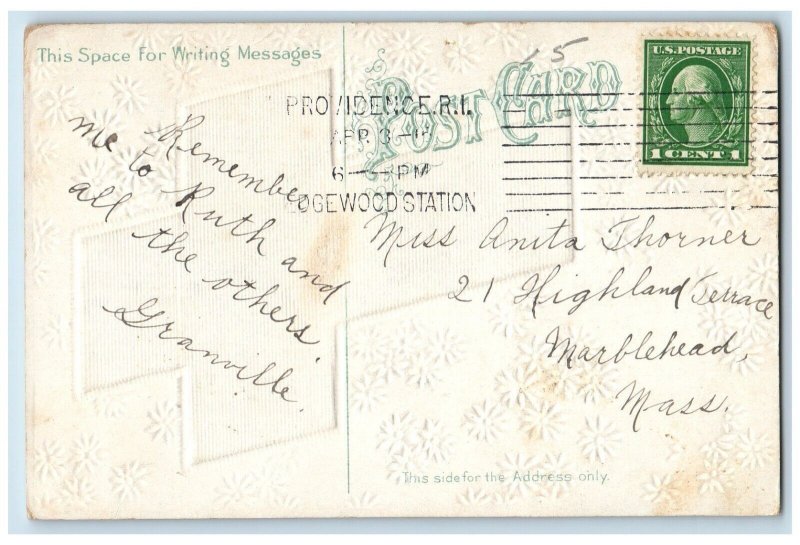 This Space For Writing Messages
POST CARD
15
U.S. POSTAGE
1 CENT 1
PROVIDENCE, R.I.
APR 3
6 PM
EDGEWOOD STATION
Remember
me to Ruth and
all the others.
Granville.
Miss Anita Thorner
21 Highland Terrace
Marblehead,
Mass.
This side for the Address only.